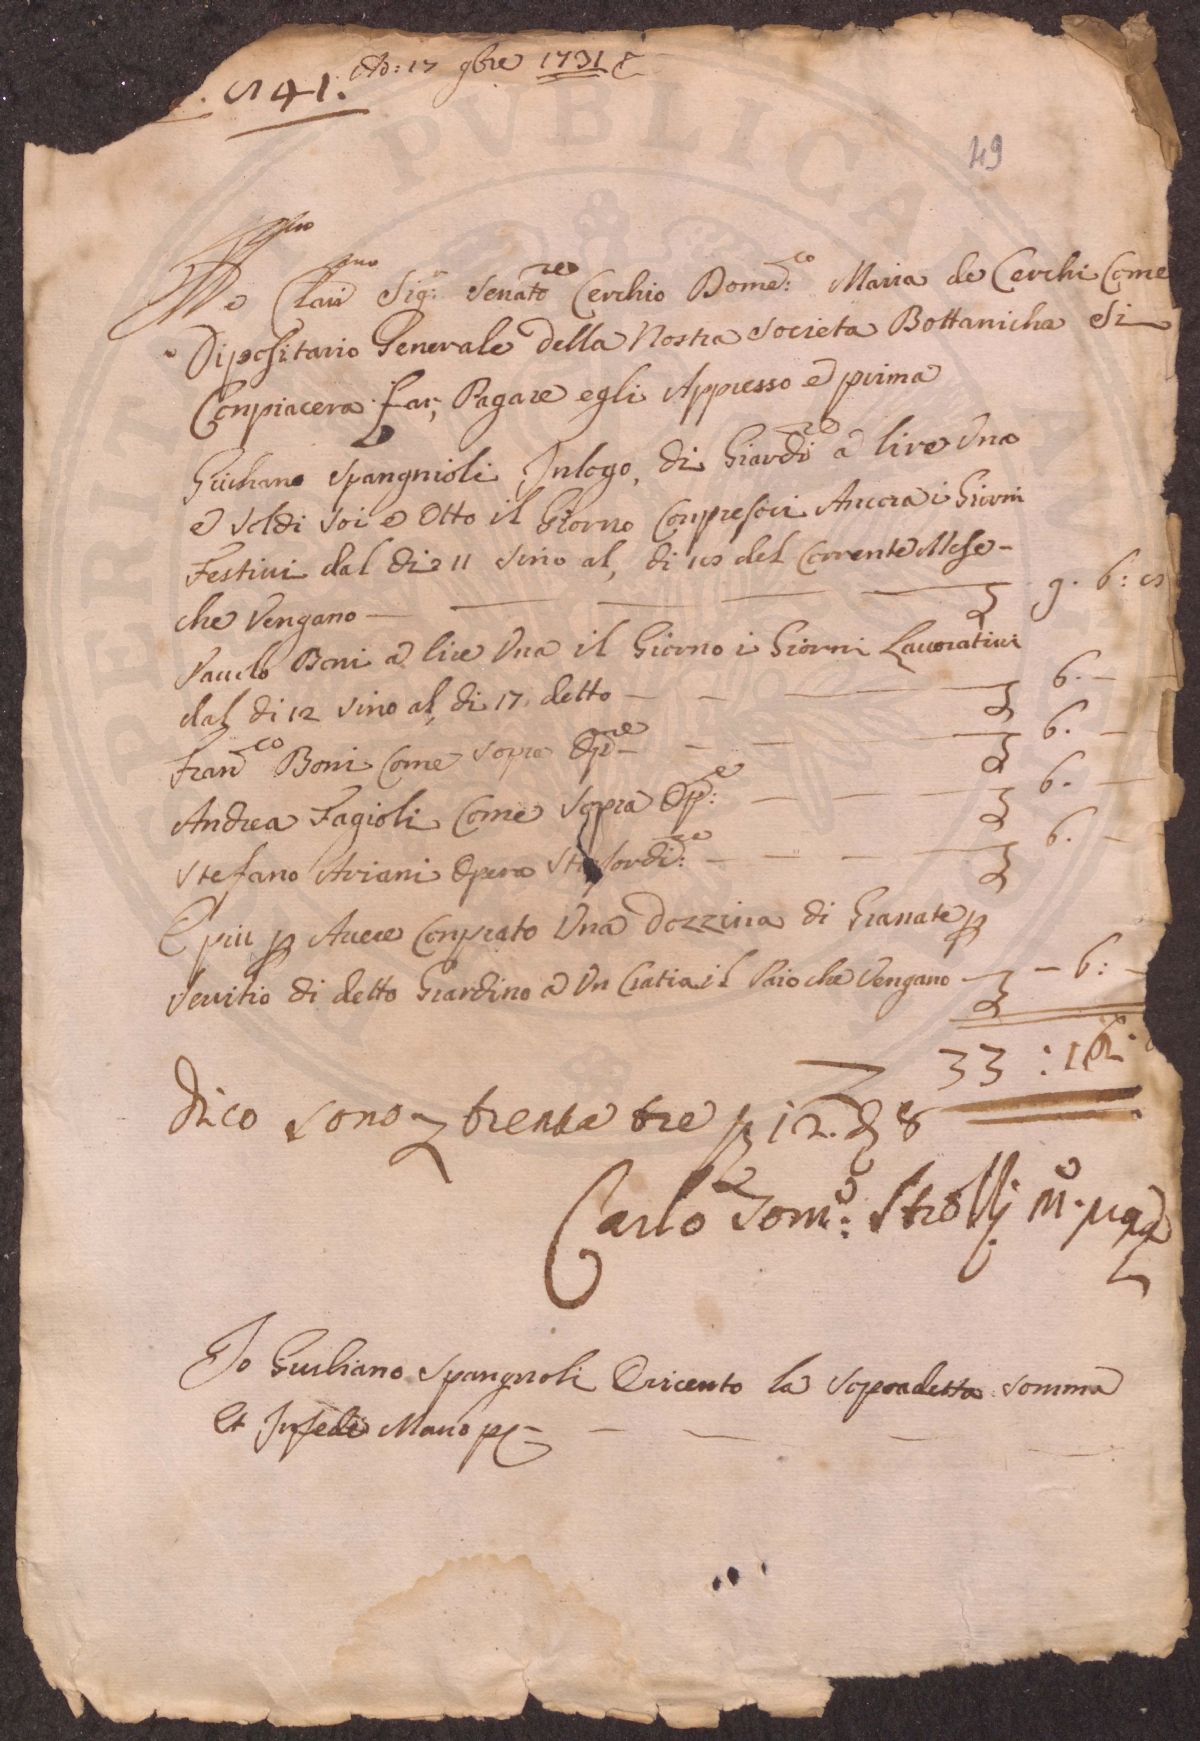 Adì: 17 9bre 1731
N 41.
49
Illmo
e Clarmo Sigr: Senatore Cerchio Domenco: Maria de Cerchi Come
Dipositario Generale della Nostra Societa Bottanicha Si
Conpiacera far, Pagare egli Appresso e prima
Giuliano Spangnioli Inlogo, di Giardre a lire Una
e Soldi Soi e Otto il Giorno Conpresovi Ancora i Giorni
Festivi dal di 11 Sino al, di del Corrente Mese
che Vengano 9. 6:
Pauolo Boni a lire Una il Giorno i Giorni Lavorativi
dal di 12 Sino al, di 17. detto 6.
Franco Boni Come Sopra Opre 6.
Andrea Fagioli Come Sopra Opre: 6.
Stefano Ariani Opera Strasordire: 6.
E piu p Avere Conprato Una Dozzina di Granate p
Servitio di detto Giardino a Un Cratia il Paio che Vengano 6:
33:
Dico Sono trenta tre p 12. 8
Carlo Tomo: Mo. ppa
Io Giuliano Spangnoli O ricevto la Sopradetta Somma
Et Infede Mano pp